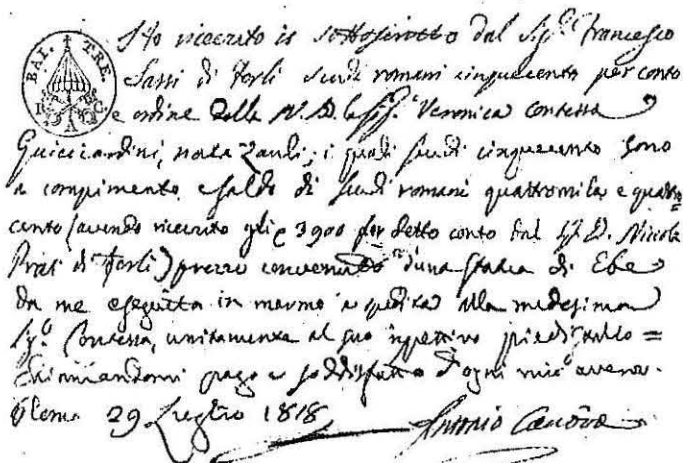 BAI. TRE.
R. C.
Ho ricevuto io sottoscritto dal Sig.r Francesco
Sassi di Forlì scudi romani cinquecento per conto
e ordine della N. D. la Sig.ra Veronica Contessa
Guicciardini, nata Zauli; i quali scudi cinquecento sono
a compimento e saldo di scudi romani quattromila e quattro=
cento (avendo ricevuto gli 3900 per detto conto dal D. Nicola
di Forlì) prezzo convenuto d'una statua di Ebe
da me eseguita in marmo e spedita alla medesima
Sig.ra Contessa, unitamente al suo rispettivo piedistallo =
chiamandomi pago e soddisfatto d'ogni mio avere.
Roma 29 Luglio 1818
Antonio Canova